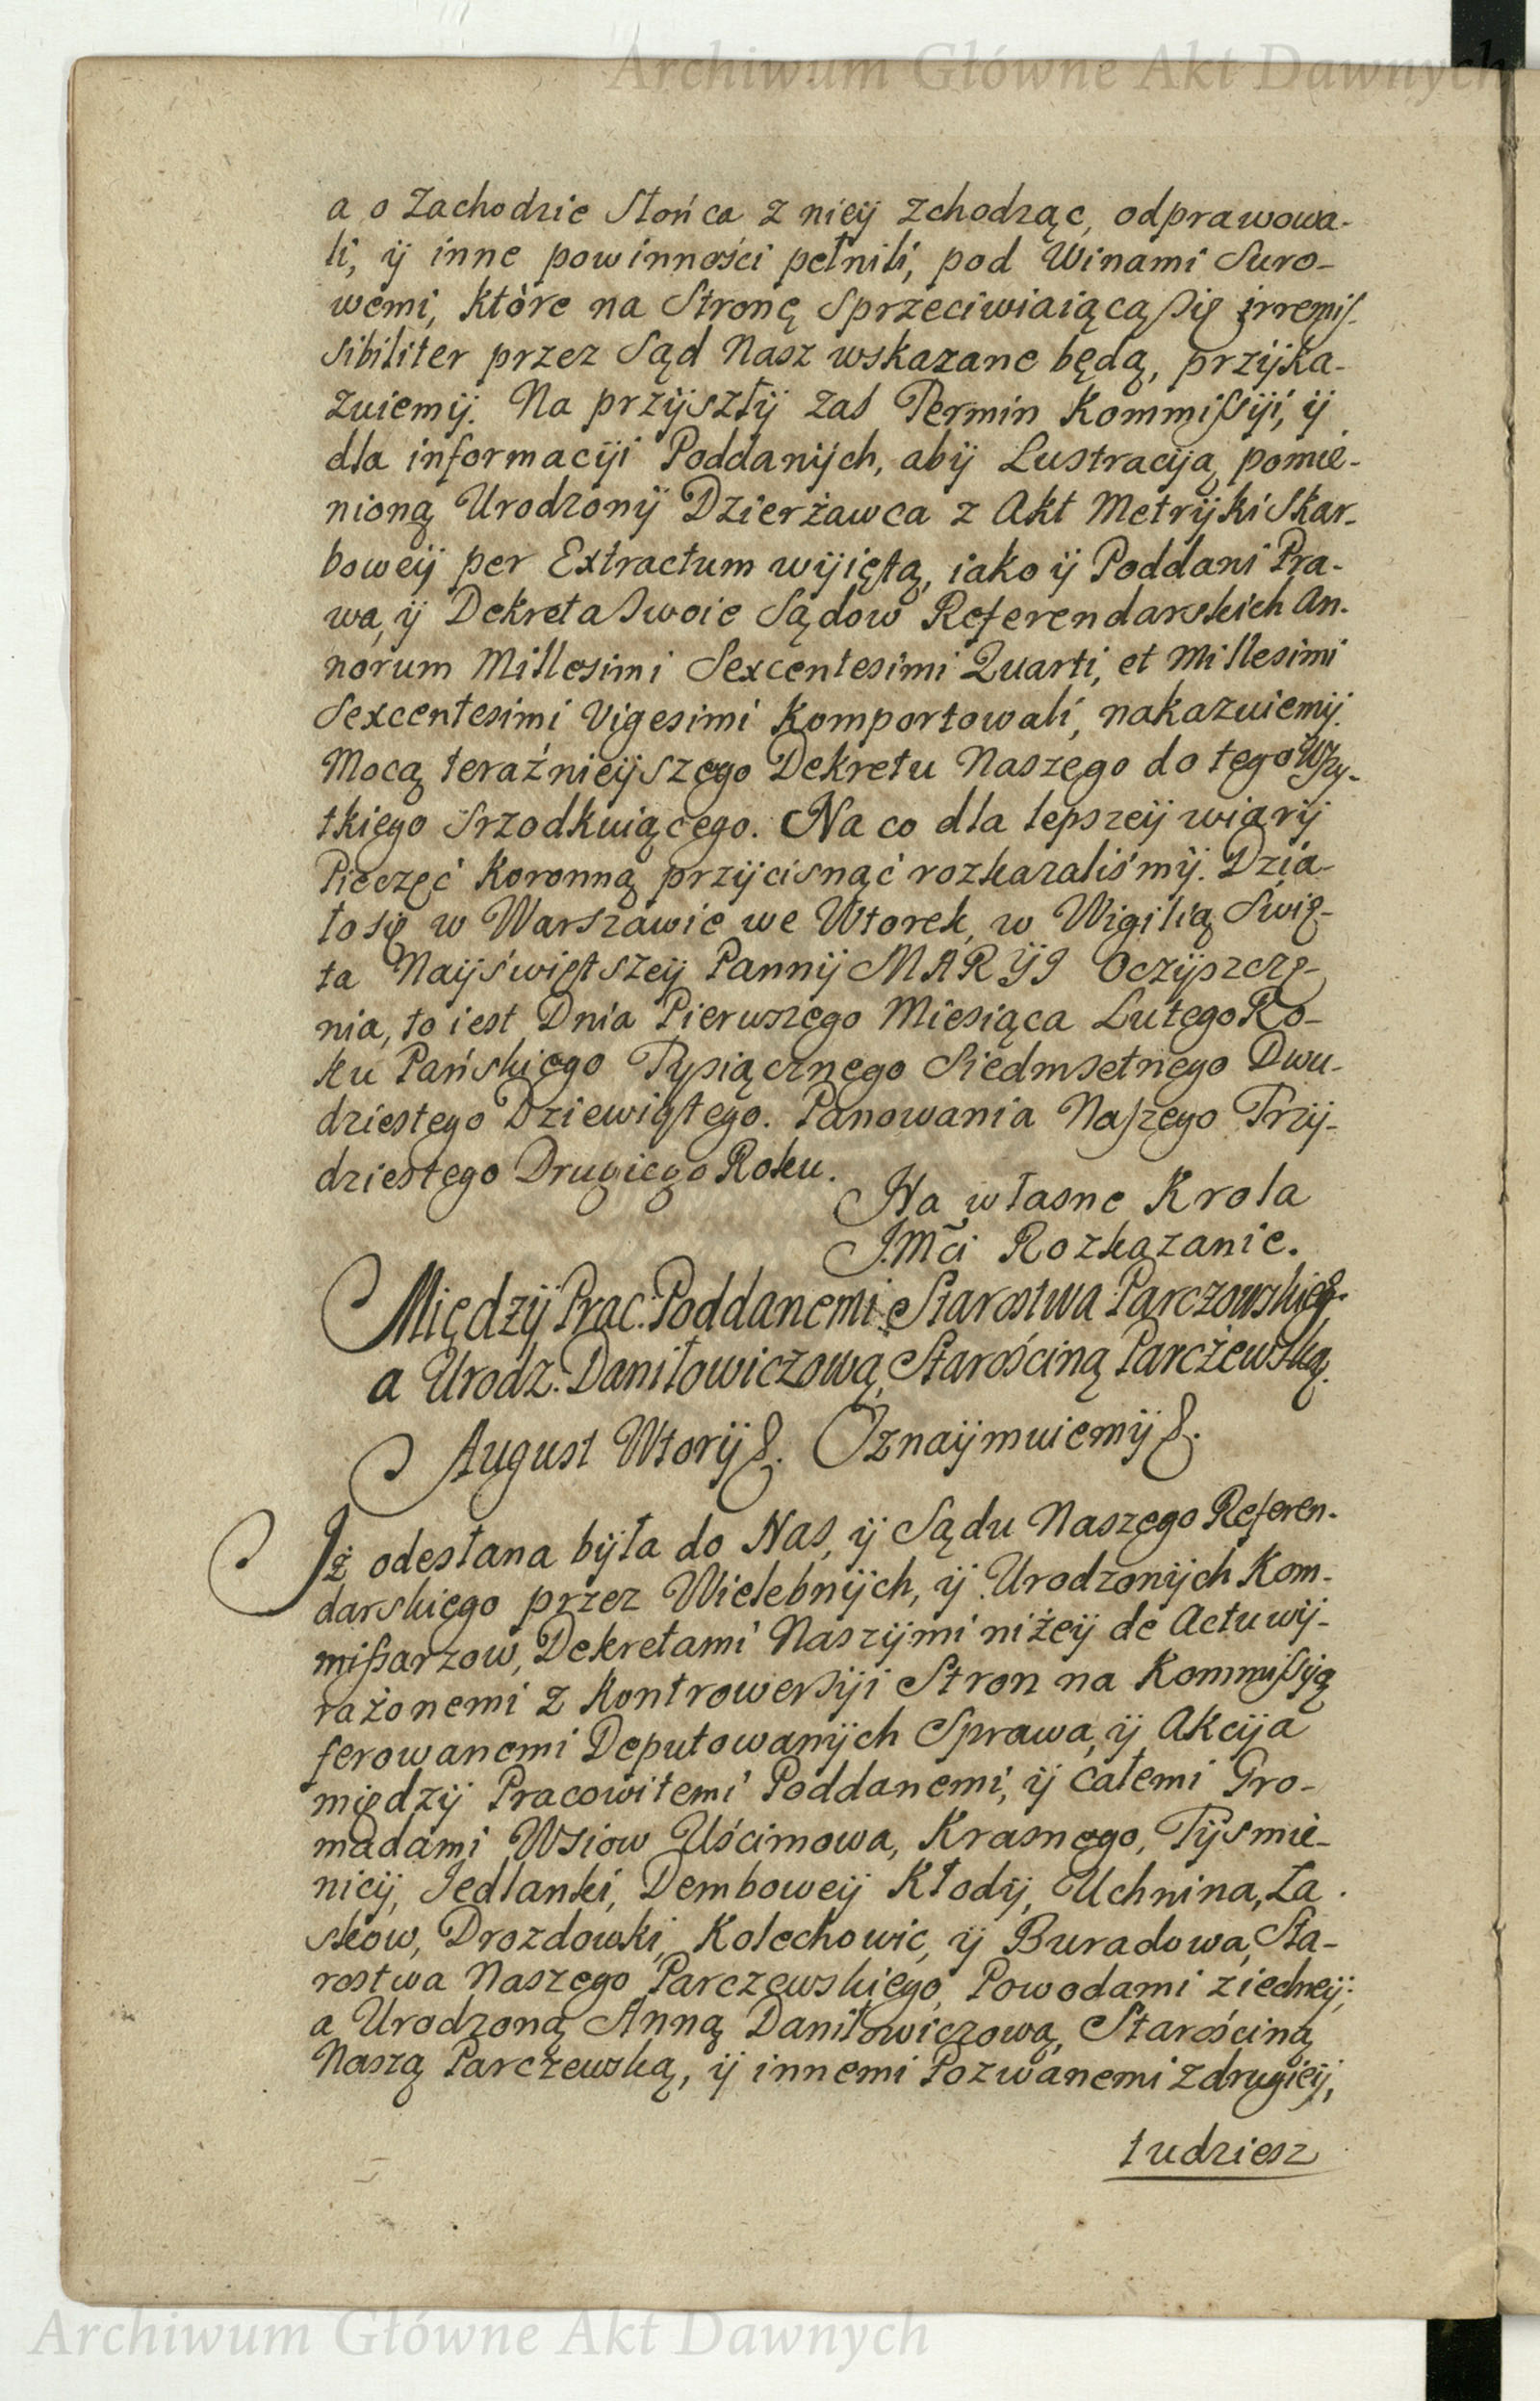 Archiwum Główne Akt Dawnych
a o Zachodzie Słońca z nieÿ zchodząc, odprawowa-
li, ÿ inne powinności pełnili, pod Winami Suro-
wemi, które na Stronę Sprzeciwiaiącą się irremis-
sibiliter przez Sąd Nasz wskazane będą, przÿka-
zuiemÿ. Na przÿszłÿ zaś Termin Kommißÿi, ÿ
dla informacÿi Poddanÿch, abÿ Lustracÿą pomie-
nioną Urodzonÿ Dzierżawca z Akt Metrÿki Skar-
boweÿ per Extractum wÿiętą, iako ÿ Poddani Pra-
wa, ÿ Dekreta Swoie Sądow Referendarskich An-
norum Millesimi Sexcentesimi Quarti, et Millesimi
Sexcentesimi Vigesimi Komportowali, nakazuiemÿ.
Mocą teraźnieÿszego Dekretu Naszego do tego Wszy-
tkiego Srzodkuiącego. Na co dla lepszeÿ wiarÿ
Pieczęć Koronną przÿcisnąć rozkazaliśmÿ. Dzia-
ło się w Warszawie we Wtorek, w Wigilią Swię-
ta Naÿświętszeÿ Pannÿ MARŸI Oczÿszczę-
nia, to iest Dnia Pierwszego Miesiąca Lutego Ro-
ku Pańskiego Tysiącznego Siedmsetnego Dwu-
dziestego Dziewiątego. Panowania Naszego Trzÿ-
dziestego Drugiego Roku.
Na własne Krola
J.Mći Rozkazanie.
Międzÿ Prac: Poddanemi Starostwa Parczowskieg.
a Urodz. Daniłowiczową, Starościną Parczewską.
August Wtorÿ &. Oznaÿmuiemÿ &.
Iż odesłana bÿła do Nas, ÿ Sądu Naszego Referen-
darskiego przez Wielebnÿch, ÿ Urodzonÿch Kom-
mißarzow, Dekretami Naszÿmi niżeÿ de Actu wÿ-
rażonemi z Kontrowersÿi Stron na Kommißÿą
ferowanemi Deputowanÿch Sprawa, ÿ Akcÿa
międzÿ Pracowitemi Poddanemi, ÿ całemi Gro-
madami Wsiow Uścimowa, Krasnego, Tÿsmie-
nicÿ, Jedlanki, Demboweÿ Kłodÿ, Uchnina, La
skow, Drozdowki, Kolechowic, ÿ Buradowa, Sta-
rostwa Naszego Parczewskiego, Powodami z iedneÿ;
a Urodzoną Anną Daniłowiczową, Starościną
Naszą Parczewską, ÿ innemi Pozwanemi z drugieÿ,
tudziesz
Archiwum Główne Akt Dawnych